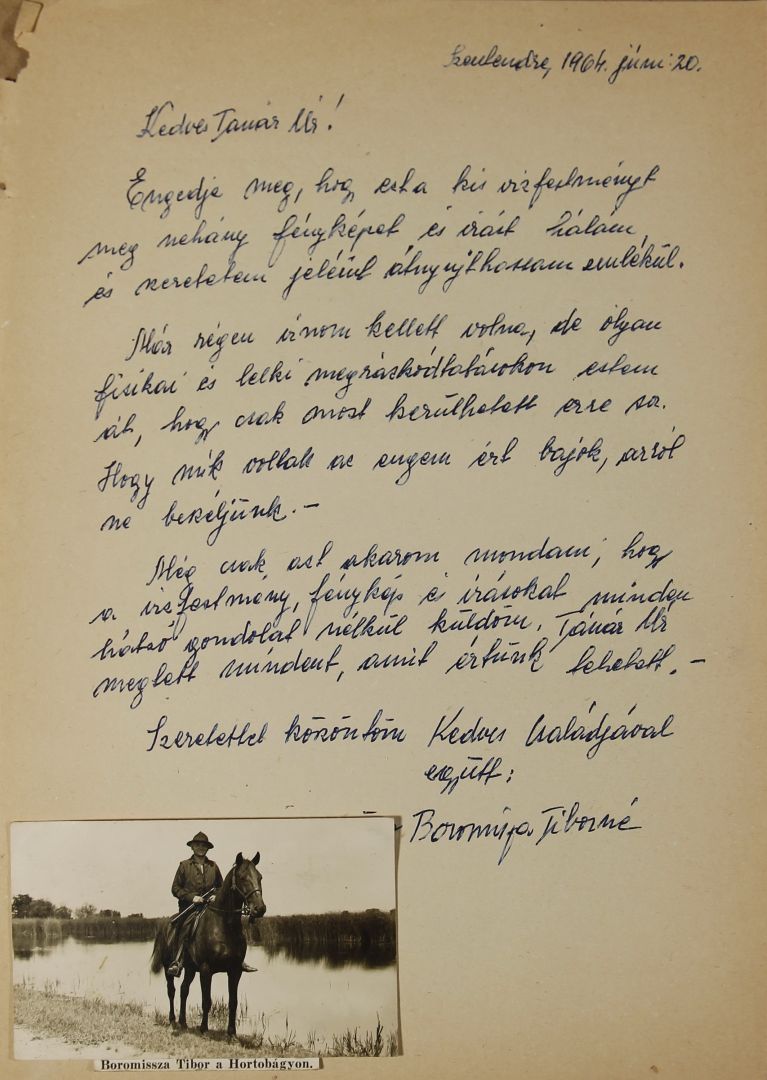 Szentendre, 1964. júni. 20.
Kedves Tanár Úr!
Engedje meg, hogy ezt a kis vízfestményt
meg néhány fényképet és írást hálám,
és szeretetem jeléül átnyújthassam emlékül.
Már régen írnom kellett volna, de olyan
fizikai és lelki megrázkódtatásokon estem
át, hogy csak most kerülhetett erre sor.
Hogy mik voltak az engem ért bajok, arról
ne beszéljünk. –
Még csak azt akarom mondani, hogy
a vízfestmény, fénykép és írásokat minden
hátsó gondolat nélkül küldöm. Tanár Úr
megtett mindent, amit értünk tehetett. –
Szeretettel köszöntöm Kedves Családjával
együtt:
Boromisza Tiborné
Boromissza Tibor a Hortobágyon.